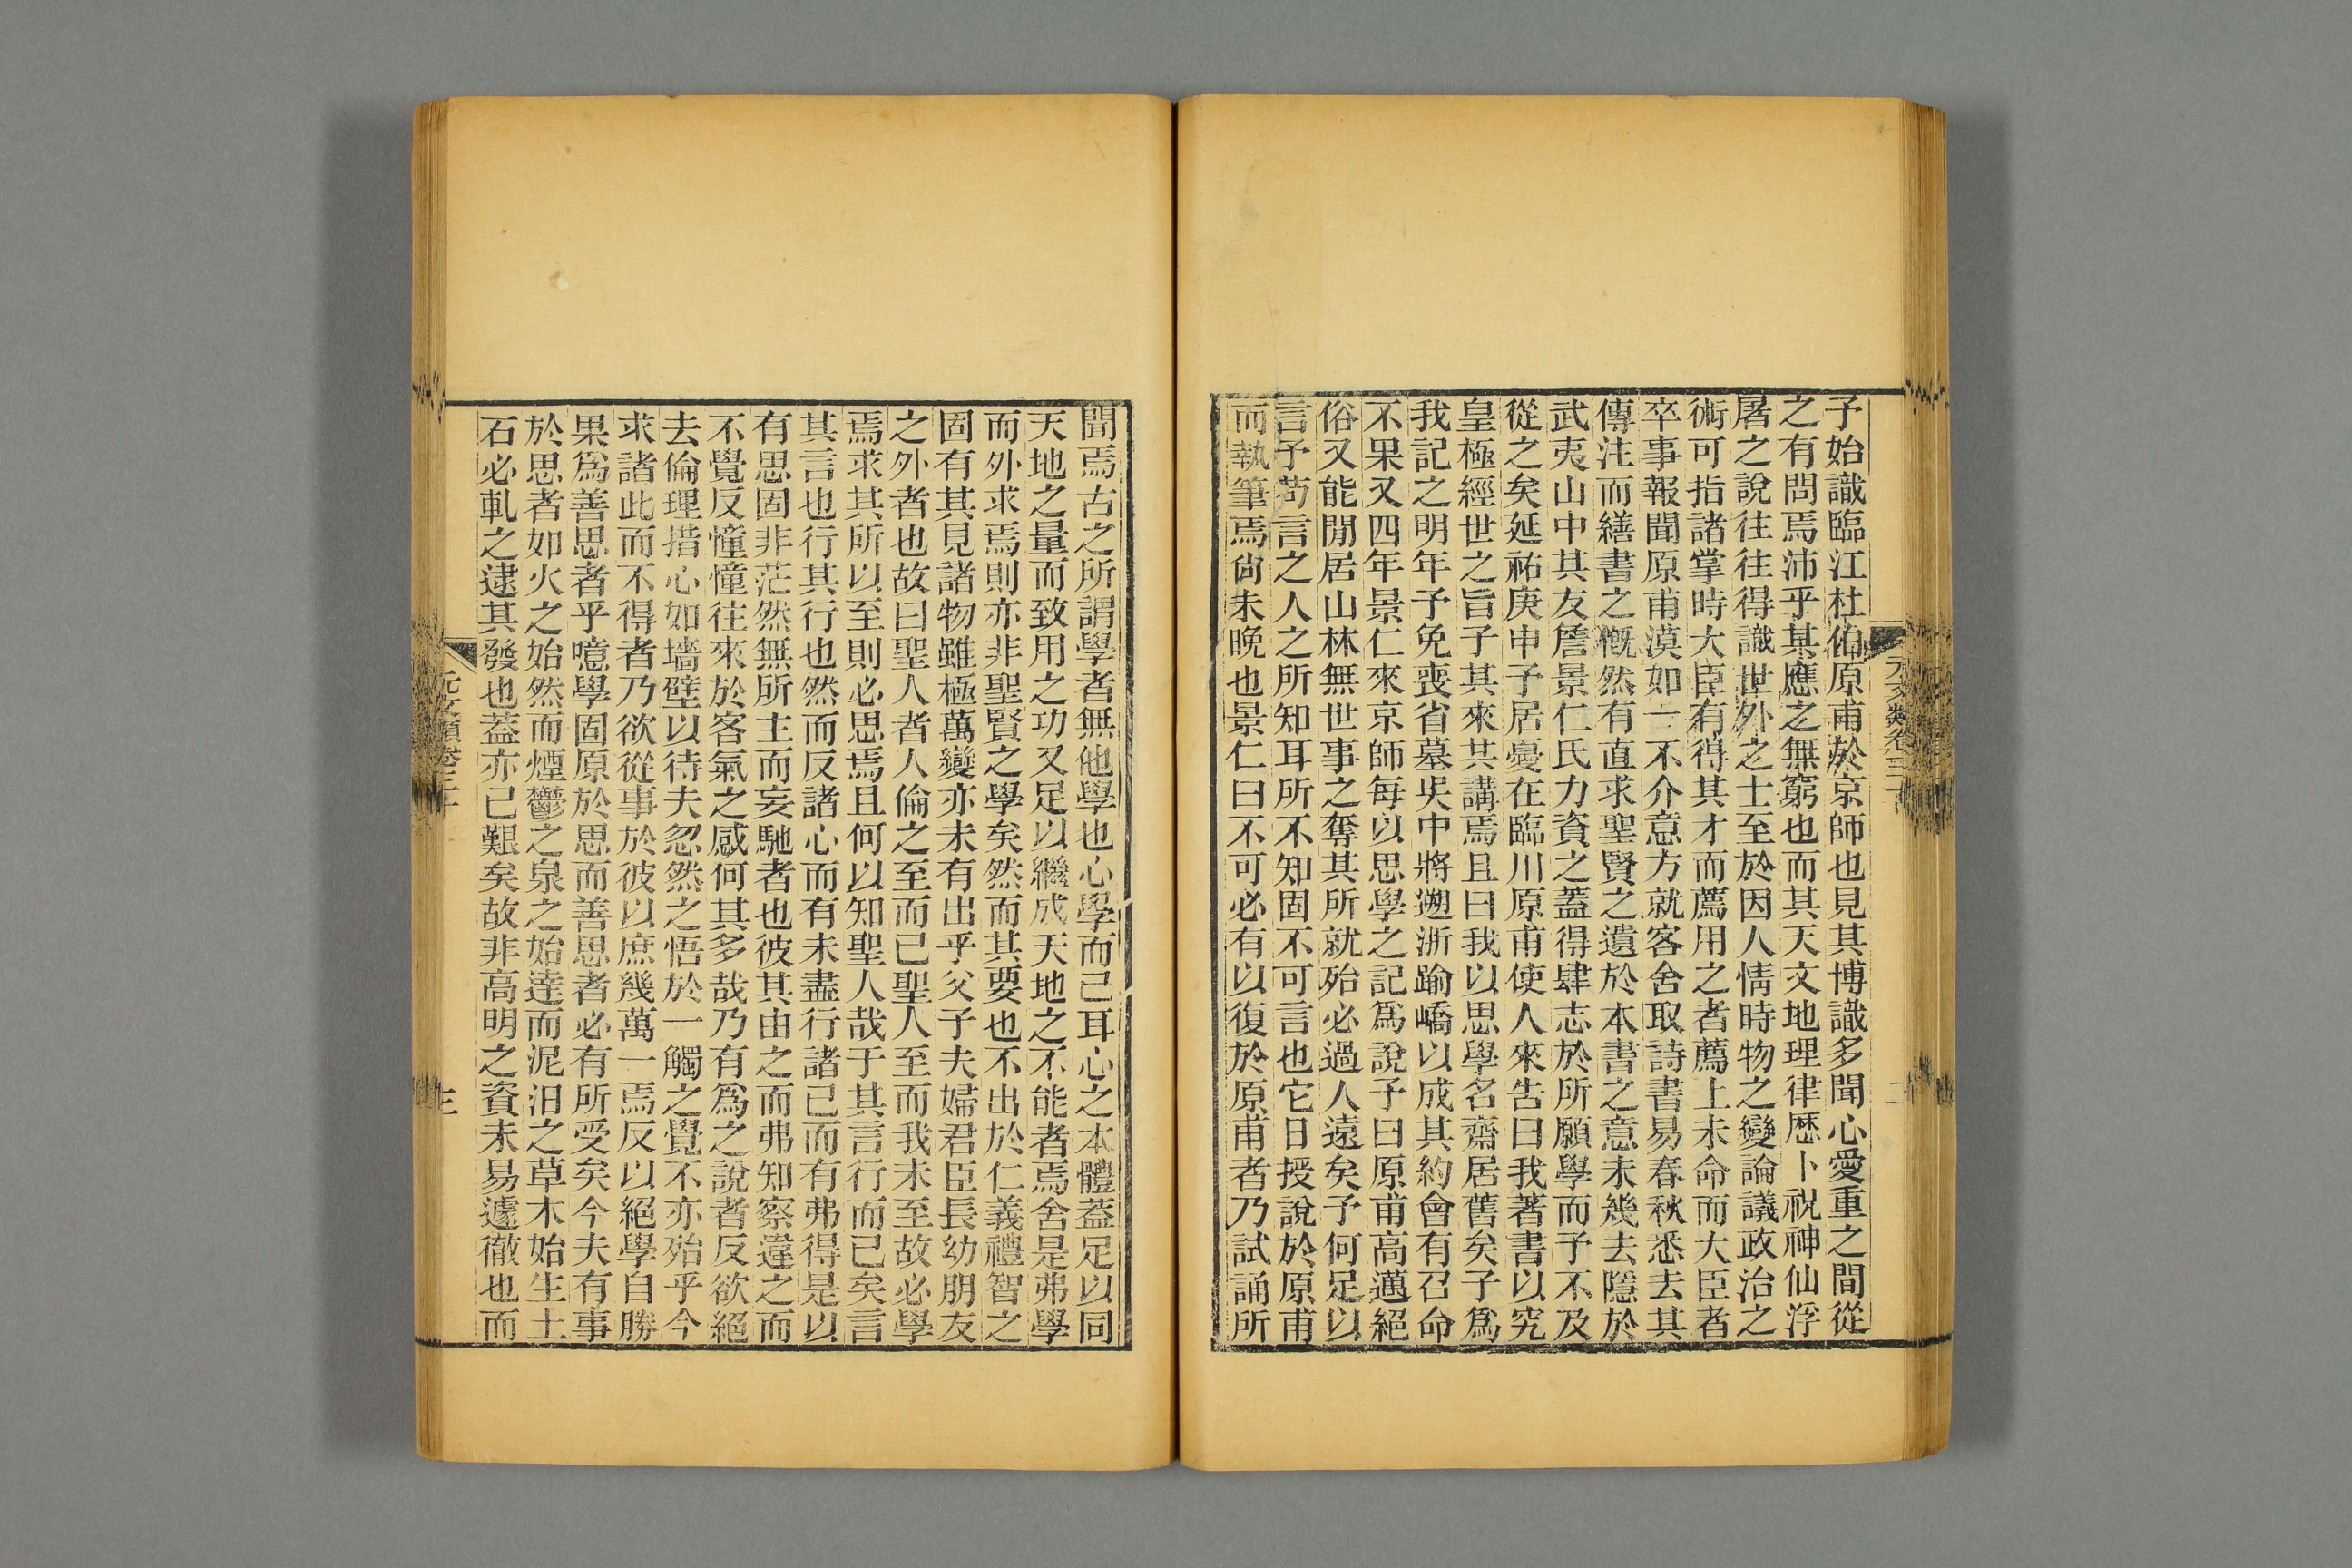 子始識臨江杜伯原甫於京師也見其博識多聞心愛重之間從
之有問焉沛乎其應之無窮也而其天文地理律歷卜祝神仙浮
屠之說往往得識世外之士至於因人情時物之變論議政治之
術可指諸掌時大臣有得其才而薦用之者薦上未命而大臣者
卒事報聞原甫漠如一不介意方就客舍取詩書易春秋悉去其
傳注而繕書之慨然有直求聖賢之遺於本書之意未幾去隱於
武夷山中其友詹景仁氏力資之蓋得肆志於所願學而予不及
從之矣延祐庚申予居憂在臨川原甫使人來告曰我著書以究
皇極經世之旨子其來共講焉且曰我以思學名齋居舊矣子爲
我記之明年予免喪省墓吳中將遡浙踰嶠以成其約會有召命
不果又四年景仁來京師每以思學之記爲說予曰原甫高邁絕
俗又能閒居山林無世事之奪其所就殆必過人遠矣予何足以
言予苟言之人之所知耳所不知固不可言也它日授說於原甫
而執筆焉尙未晚也景仁曰不可必有以復於原甫者乃試誦所
元文類卷三十
二
聞焉古之所謂學者無他學也心學而已耳心之本體蓋足以同
天地之量而致用之功又足以繼成天地之不能者焉舍是弗學
而外求焉則亦非聖賢之學矣然而其要也不出於仁義禮智之
固有其見諸物雖極萬變亦未有出乎父子夫婦君臣長幼朋友
之外者也故曰聖人者人倫之至而已聖人至而我未至故必學
焉求其所以至則必思焉且何以知聖人哉于其言行而已矣言
其言也行其行也然而反諸心而有未盡行諸己而有弗得是以
有思固非茫然無所主而妄馳者也彼其由之而弗知察違之而
不覺反憧憧往來於客氣之感何其多哉乃有爲之說者反欲絕
去倫理措心如墻壁以待夫忽然之悟於一觸之覺不亦殆乎今
求諸此而不得者乃欲從事於彼以庶幾萬一焉反以絕學自勝
果爲善思者乎噫學固原於思而善思者必有所受矣今夫有事
於思者如火之始然而煙鬱之泉之始達而泥汨之草木始生土
石必軋之逮其發也蓋亦已艱矣故非高明之資未易遽徹也而
元文類卷三十
三